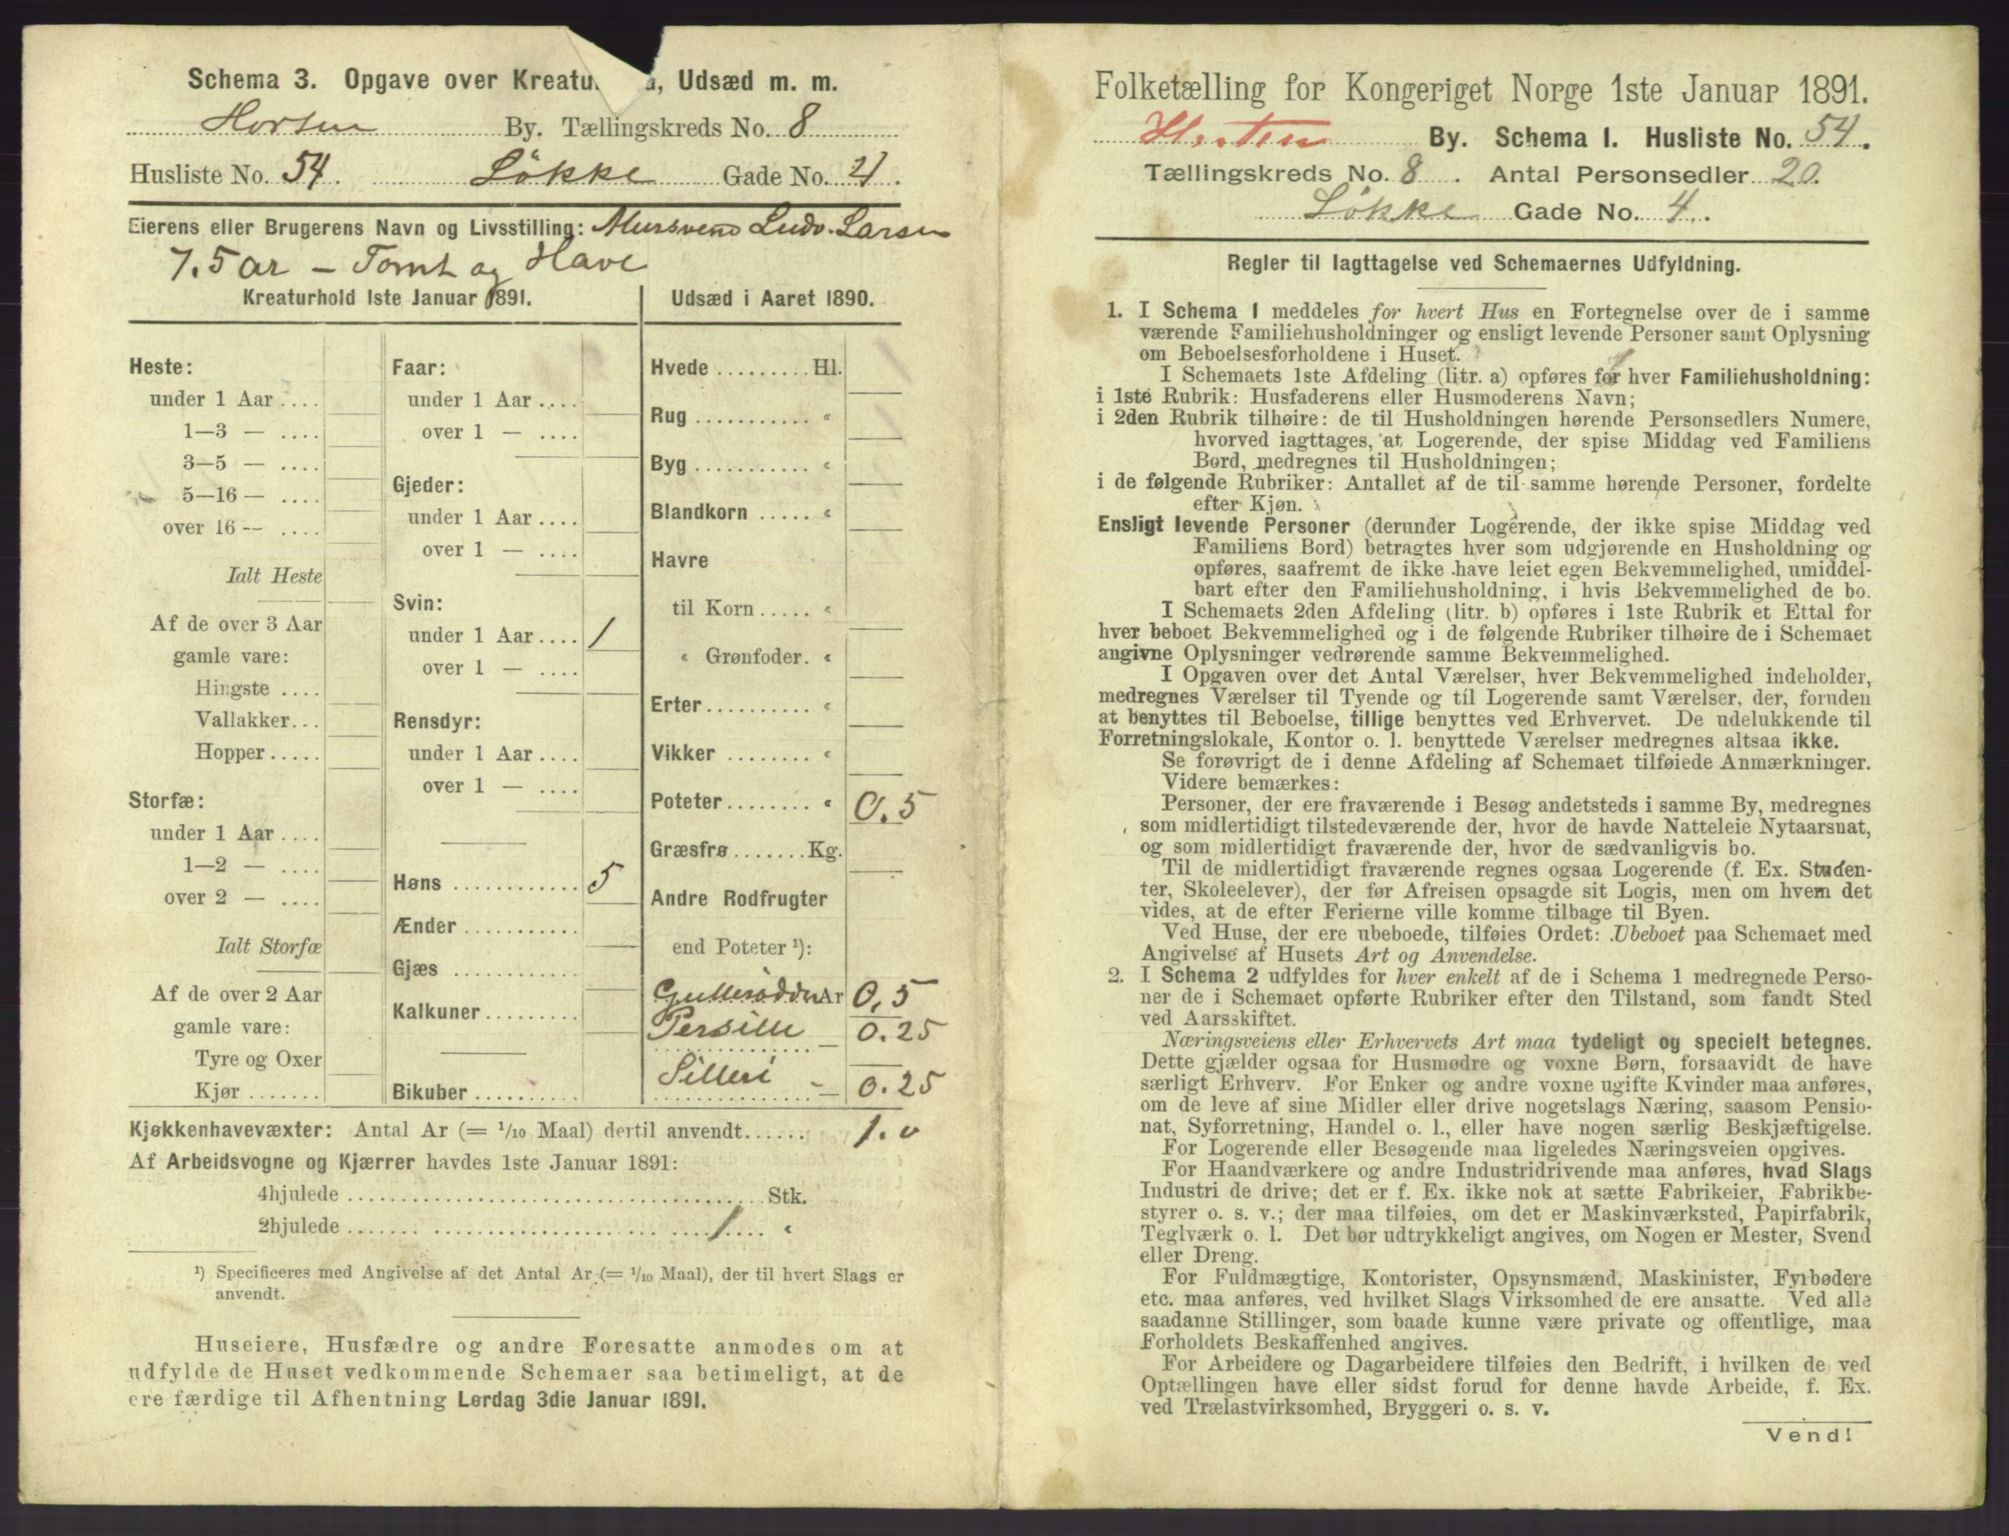 Schema 3. Opgave over Kreatu d, Udsæd m. m.
Horten By. Tællingskreds No. 8
Husliste No. 54. Løkke Gade No. 4.
Eierens eller Brugerens Navn og Livsstilling: Mursvend Ludv. Larsen
7.5 ar – Tomt og Have
Kreaturhold 1ste Januar 1891.
Heste:
under 1 Aar ....
1—3 — ....
3—5 — ....
5—16 — ....
over 16 — ....
Ialt Heste
Af de over 3 Aar
gamle vare:
Hingste ....
Vallakker...
Hopper.....
Storfæ:
under 1 Aar ....
1—2 — ....
over 2 — ....
Ialt Storfæ
Af de over 2 Aar
gamle vare:
Tyre og Oxer
Kjør .......
Faar:
under 1 Aar ....
over 1 — ....
Gjeder:
under 1 Aar ....
over 1 — ....
Svin:
under 1 Aar .... 1
over 1 — ....
Rensdyr:
under 1 Aar ....
over 1 — ....
Høns ............ 5
Ænder ...........
Gjæs ............
Kalkuner .........
Bikuber ..........
Udsæd i Aaret 1890.
Hvede ......... Hl.
Rug ........... «
Byg ........... «
Blandkorn ..... «
Havre
til Korn ..... «
« Grønfoder. «
Erter .......... «
Vikker ........ «
Poteter ........ « 0.5
Græsfrø ....... Kg.
Andre Rodfrugter
end Poteter ¹):
Gullerødder Ar 0,5
Persille — 0.25
Silleri — 0.25
Kjøkkenhavevæxter: Antal Ar (= 1/10 Maal) dertil anvendt...... 1.0
Af Arbeidsvogne og Kjærrer havdes 1ste Januar 1891:
4hjulede .......... Stk.
2hjulede .......... 1 .... «
¹) Specificeres med Angivelse af det Antal Ar (= 1/10 Maal), der til hvert Slags er
anvendt.
Huseiere, Husfædre og andre Foresatte anmodes om at
udfylde de Huset vedkommende Schemaer saa betimeligt, at de
ere færdige til Afhentning Lørdag 3die Januar 1891.
Folketælling for Kongeriget Norge 1ste Januar 1891.
Horten By. Schema 1. Husliste No. 54.
Tællingskreds No. 8. Antal Personsedler 20.
Løkke Gade No. 4.
Regler til Iagttagelse ved Schemaernes Udfyldning.
1. I Schema 1 meddeles for hvert Hus en Fortegnelse over de i samme
værende Familiehusholdninger og ensligt levende Personer samt Oplysning
om Beboelsesforholdene i Huset.
I Schemaets 1ste Afdeling (litr. a) opføres for hver Familiehusholdning:
i 1ste Rubrik: Husfaderens eller Husmoderens Navn;
i 2den Rubrik tilhøire: de til Husholdningen hørende Personsedlers Numere,
hvorved iagttages, at Logerende, der spise Middag ved Familiens
Bord, medregnes til Husholdningen;
i de følgende Rubriker: Antallet af de til samme hørende Personer, fordelte
efter Kjøn.
Ensligt levende Personer (derunder Logerende, der ikke spise Middag ved
Familiens Bord) betragtes hver som udgjørende en Husholdning og
opføres, saafremt de ikke have leiet egen Bekvemmelighed, umiddel-
bart efter den Familiehusholdning, i hvis Bekvemmelighed de bo.
I Schemaets 2den Afdeling (litr. b) opføres i 1ste Rubrik et Ettal for
hver beboet Bekvemmelighed og i de følgende Rubriker tilhøire de i Schemaet
angivne Oplysninger vedrørende samme Bekvemmelighed.
I Opgaven over det Antal Værelser, hver Bekvemmelighed indeholder,
medregnes Værelser til Tyende og til Logerende samt Værelser, der, foruden
at benyttes til Beboelse, tillige benyttes ved Erhvervet. De udelukkende til
Forretningslokale, Kontor o. l. benyttede Værelser medregnes altsaa ikke.
Se forøvrigt de i denne Afdeling af Schemaet tilføiede Anmærkninger.
Videre bemærkes:
Personer, der ere fraværende i Besøg andetsteds i samme By, medregnes
som midlertidigt tilstedeværende der, hvor de havde Natteleie Nytaarsnat,
og som midlertidigt fraværende der, hvor de sædvanligvis bo.
Til de midlertidigt fraværende regnes ogsaa Logerende (f. Ex. Studen-
ter, Skoleelever), der før Afreisen opsagde sit Logis, men om hvem det
vides, at de efter Ferierne ville komme tilbage til Byen.
Ved Huse, der ere ubeboede, tilføies Ordet: Ubeboet paa Schemaet med
Angivelse af Husets Art og Anvendelse.
2. I Schema 2 udfyldes for hver enkelt af de i Schema 1 medregnede Perso-
ner de i Schemaet opførte Rubriker efter den Tilstand, som fandt Sted
ved Aarsskiftet.
Næringsveiens eller Erhvervets Art maa tydeligt og specielt betegnes.
Dette gjælder ogsaa for Husmødre og voxne Børn, forsaavidt de have
særligt Erhverv. For Enker og andre voxne ugifte Kvinder maa anføres,
om de leve af sine Midler eller drive nogetslags Næring, saasom Pensio-
nat, Syforretning, Handel o. l., eller have nogen særlig Beskjæftigelse.
For Logerende eller Besøgende maa ligeledes Næringsveien opgives.
For Haandværkere og andre Industridrivende maa anføres, hvad Slags
Industri de drive; det er f. Ex. ikke nok at sætte Fabrikeier, Fabrikbe-
styrer o. s. v.; der maa tilføies, om det er Maskinværksted, Papirfabrik,
Teglværk o. l. Det bør udtrykkeligt angives, om Nogen er Mester, Svend
eller Dreng.
For Fuldmægtige, Kontorister, Opsynsmænd, Maskinister, Fyrbødere
etc. maa anføres, ved hvilket Slags Virksomhed de ere ansatte. Ved alle
saadanne Stillinger, som baade kunne være private og offentlige, maa
Forholdets Beskaffenhed angives.
For Arbeidere og Dagarbeidere tilføies den Bedrift, i hvilken de ved
Optællingen have eller sidst forud for denne havde Arbeide, f. Ex.
ved Trælastvirksomhed, Bryggeri o. s. v.
Vend!